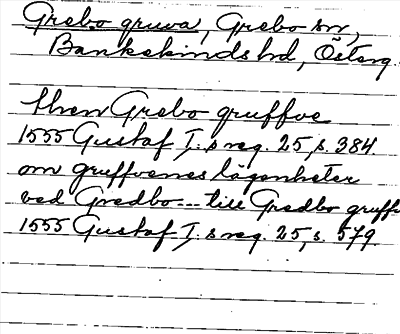 Grebo gruva, Grebo sn,
Bankekinds hd, Österg.
then Grebo gruffve
1555 Gustaf I. s reg. 25, s. 384.
om gruffvenes lägenheter
ved Gredbo -- till Gredbo gruffv
1555 Gustaf I. s reg. 25, s. 579.